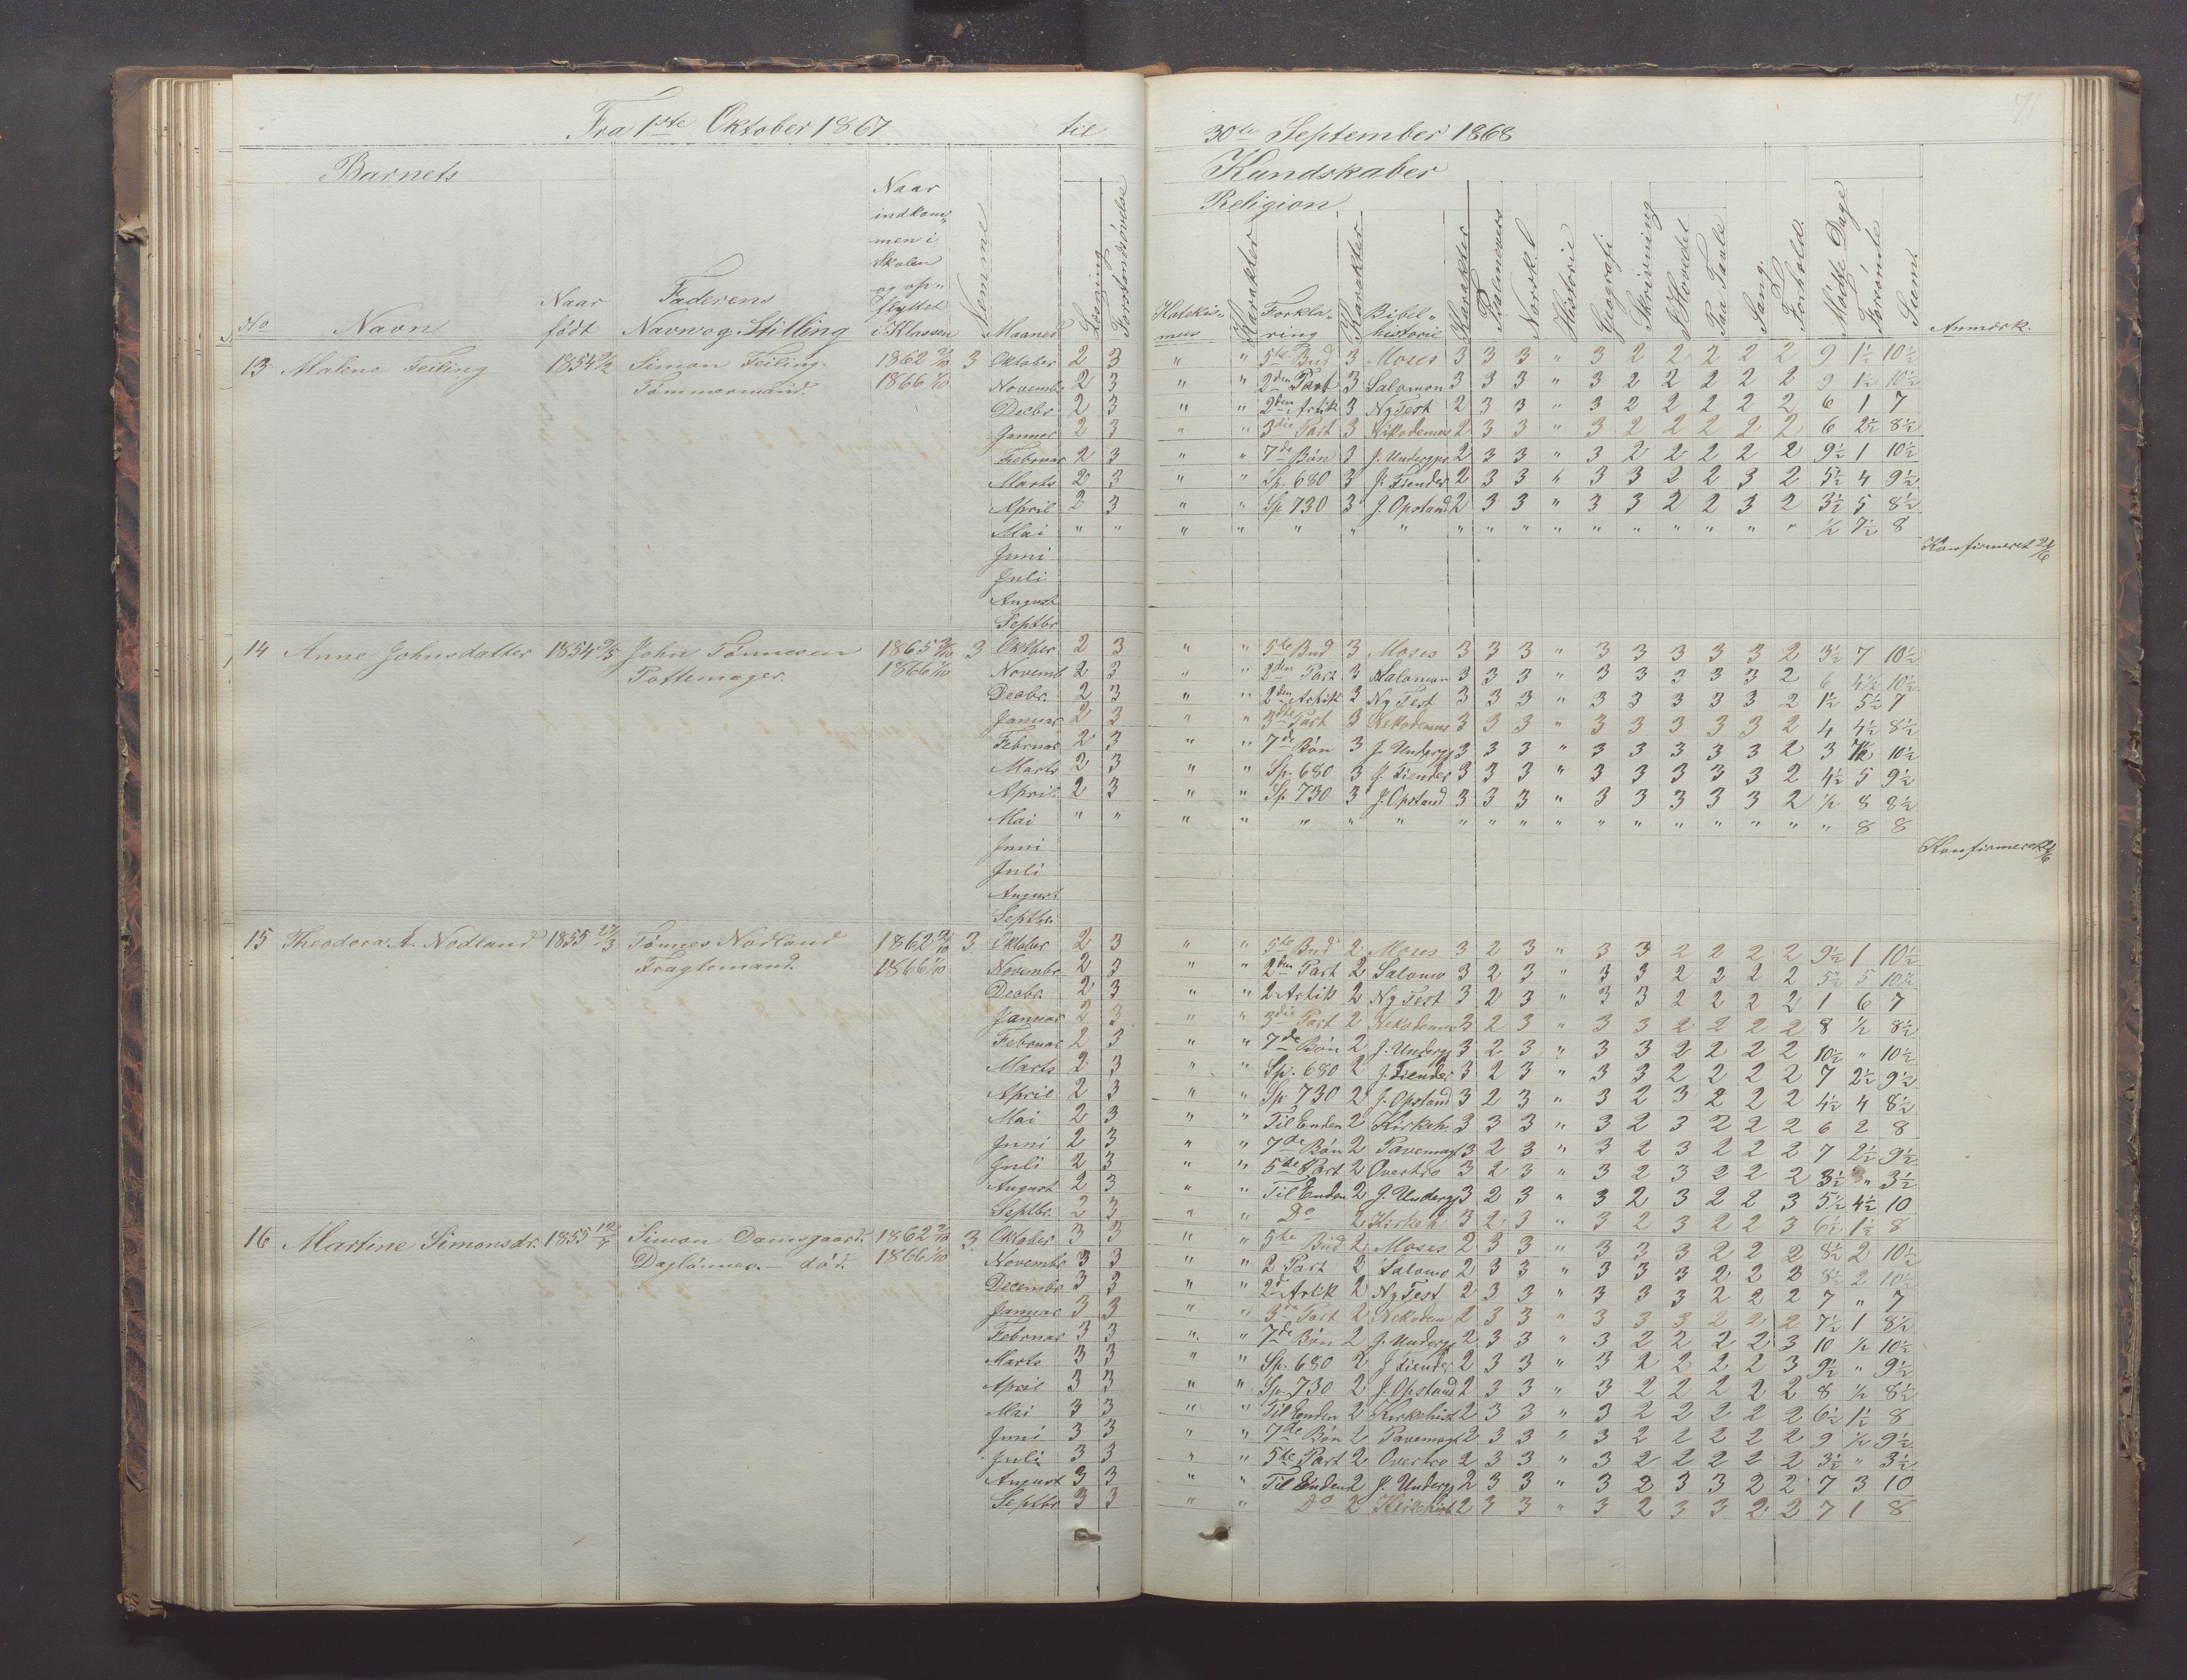 71
Fra 1ste Oktober 1867 til 30te September 1868
Barnets Kundskaber
Religion
No Navn Naar født Faderens Navn og Stilling Naar indkommen i Skolen og opflyttet i Klassen Nemme Maaned Læsning Forstandsøvelse Katekismus Karakter Forklaring Karakter Bibelhistorie Karakter Psalmevers Norsk Historie Geografi Skrivning I Hovedet Paa Tavle Sang Forhold Mødte Dage Forsømte Sum Anmærk.
13 Malene Feiling 1854 Simon Feiling 1862 3 Oktober 2 3 " " 5te Bud 3 Moses 3 3 3 " 3 2 2 2 2 2 9 1½ 10½
Tømmermand. 1866 Novembr 2 3 " " 2den Part 3 Salomon 3 3 3 " 3 2 2 2 2 2 9 1½ 10½
Decbr 2 3 " " 2den Artik 3 Ny Test 2 3 3 " 3 2 2 2 2 2 6 1 7
Januar 2 3 " " 3die Part 3 Nikodemus 2 3 3 " 3 2 2 2 2 2 6 2½ 8½
Februar 2 3 " " 7de Bøn 3 J. Undergjer 2 3 3 " 3 2 2 2 2 2 9½ 1 10½
Marts 2 3 " " Sp. 680 3 J. Fiender 2 3 3 " 3 3 2 2 3 2 5½ 4 9½
April 2 3 " " Sp 730 3 J. Opstand 2 3 3 " 3 3 2 2 3 2 3½ 5 8½
Mai " " " " " " " " " " " " " " " " " ½ 7½ 8
Juni Konfirmeret
Juli
August
Septbr
14 Anne Johnsdatter 1854 John Tønnesen 1865 3 Oktber 2 3 " " 5te Bud 3 Moses 3 3 3 " 3 3 3 3 3 2 3½ 7 10½
Pottemager. 1866 Novemb 2 3 " " 2den Part 3 Salomon 3 3 3 " 3 3 3 3 3 2 6 4½ 10½
Decbr. 2 3 " " 2den Artik 3 Ny Test 3 3 3 " 3 3 3 3 3 2 1½ 5½ 7
Januar 2 3 " " 3die Part 3 Nekodemus 3 3 3 " 3 3 3 3 3 2 4 4½ 8½
Februar 2 3 " " 7de Bøn 3 J. Undergj 3 3 3 " 3 3 3 3 3 2 3 7½ 10½
Marts 2 3 " " Sp. 680 3 J. Fiender 3 3 3 " 3 3 3 3 3 2 4½ 5 9½
April 2 3 " " Sp 730 3 J. Opstand 3 3 3 " 3 3 3 3 3 2 ½ 8 8½
Mai " " " " " " " " " " " " " " " " " " 8 8
Juni Konfirmeret
Juli
August
Septbr.
15 Theodora A. Nodland 1855 27/3 Tønnes Nodland 1862 3. Oktober 2 3 " " 5te Bud 2 Moses 3 2 3 " 3 3 2 2 2 2 9½ 1 10½
Fragtemand. 1866 Novembr 2 3 " " 2den Part 2 Salomo 3 2 3 " 3 3 2 2 2 2 5½ 5 10½
Decbr. 2 3 " " 2 Artik 2 Ny Test 3 2 3 " 3 3 2 2 2 2 1 6 7
Januar 2 3 " " 3die Part 2 Nekodemu 3 2 3 " 3 3 2 2 2 2 8 ½ 8½
Februar 2 3 " " 7de Bøn 2 J. Undergj 3 2 3 " 3 3 2 2 2 2 10½ " 10½
Marts 2 3 " " Sp. 680 2 J. Fiender 3 2 3 " 3 3 2 2 2 2 7 2½ 9½
April 2 3 " " Sp 730 2 J. Opstand 3 2 3 " 3 2 3 2 2 2 4½ 4 8½
Mai 2 3 " " Til Enden 2 Kirkeh. 3 3 3 " 3 2 3 2 2 2 6 2 8
Juni 2 3 " " 7de Bøn 2 Pavemagt 3 2 3 " 3 2 3 2 2 2 7 2½ 9½
Juli 2 3 " " 5te Part 2 Overtro 3 2 3 " 3 2 3 2 2 2 3½ " 3½
August 2 3 " " Til Enden 2 J. Undergj 3 2 3 " 3 2 3 2 2 3 5½ 4½ 10
Septbr. 2 3 " " Do 2 Kirkeh 3 2 3 " 3 2 3 2 2 3 6½ 1½ 8
16 Martine Simonsdr. 1855 Simon Damsgaard. 1862 3. Oktober 3 3 " " 5te Bud 2 Moses 2 3 3 " 3 3 3 2 2 2 8½ 2 10½
Daglønner. - død. 1866 Novembr 3 3 " " 2 Part 2 Salomo 2 3 3 " 3 3 3 2 2 2 8½ 2 10½
Decembr 3 3 " " 2d Artik 2 Ny Test 2 3 3 " 3 3 3 2 2 2 7 " 7
Januar 3 3 " " 3die Part 2 Nekodem 2 3 3 " 3 3 3 2 2 2 7½ 1 8½
Februar 3 3 " " 7de Bøn 2 J. Undergj 2 3 3 " 3 2 2 2 2 3 10 ½ 10½
Marts 3 3 " " Sp. 680 2 J Fiender 2 3 3 " 3 2 2 2 2 3 9½ " 9½
April 3 3 " " Sp. 730 2 J. Opstand 2 3 3 " 3 2 2 2 2 2 8 ½ 8½
Mai 3 3 " " Til Enden 2 Kirkehist 2 3 3 " 3 2 2 2 2 2 6½ 1½ 8
Juni 3 3 " " 7de Bøn 2 Pavemagt 2 3 3 " 3 2 2 2 2 2 9 ½ 9½
Juli 3 3 " " 5te Part 2 Overtro 2 3 3 " 3 2 2 2 2 2 3½ " 3½
August 3 3 " " Til Enden 2 J. Undergj 2 3 3 " 3 2 3 3 2 2 7 3 10
Septbr 3 3 " " Do 2 Kirkehist 2 3 3 " 3 2 3 3 2 2 7 1 8